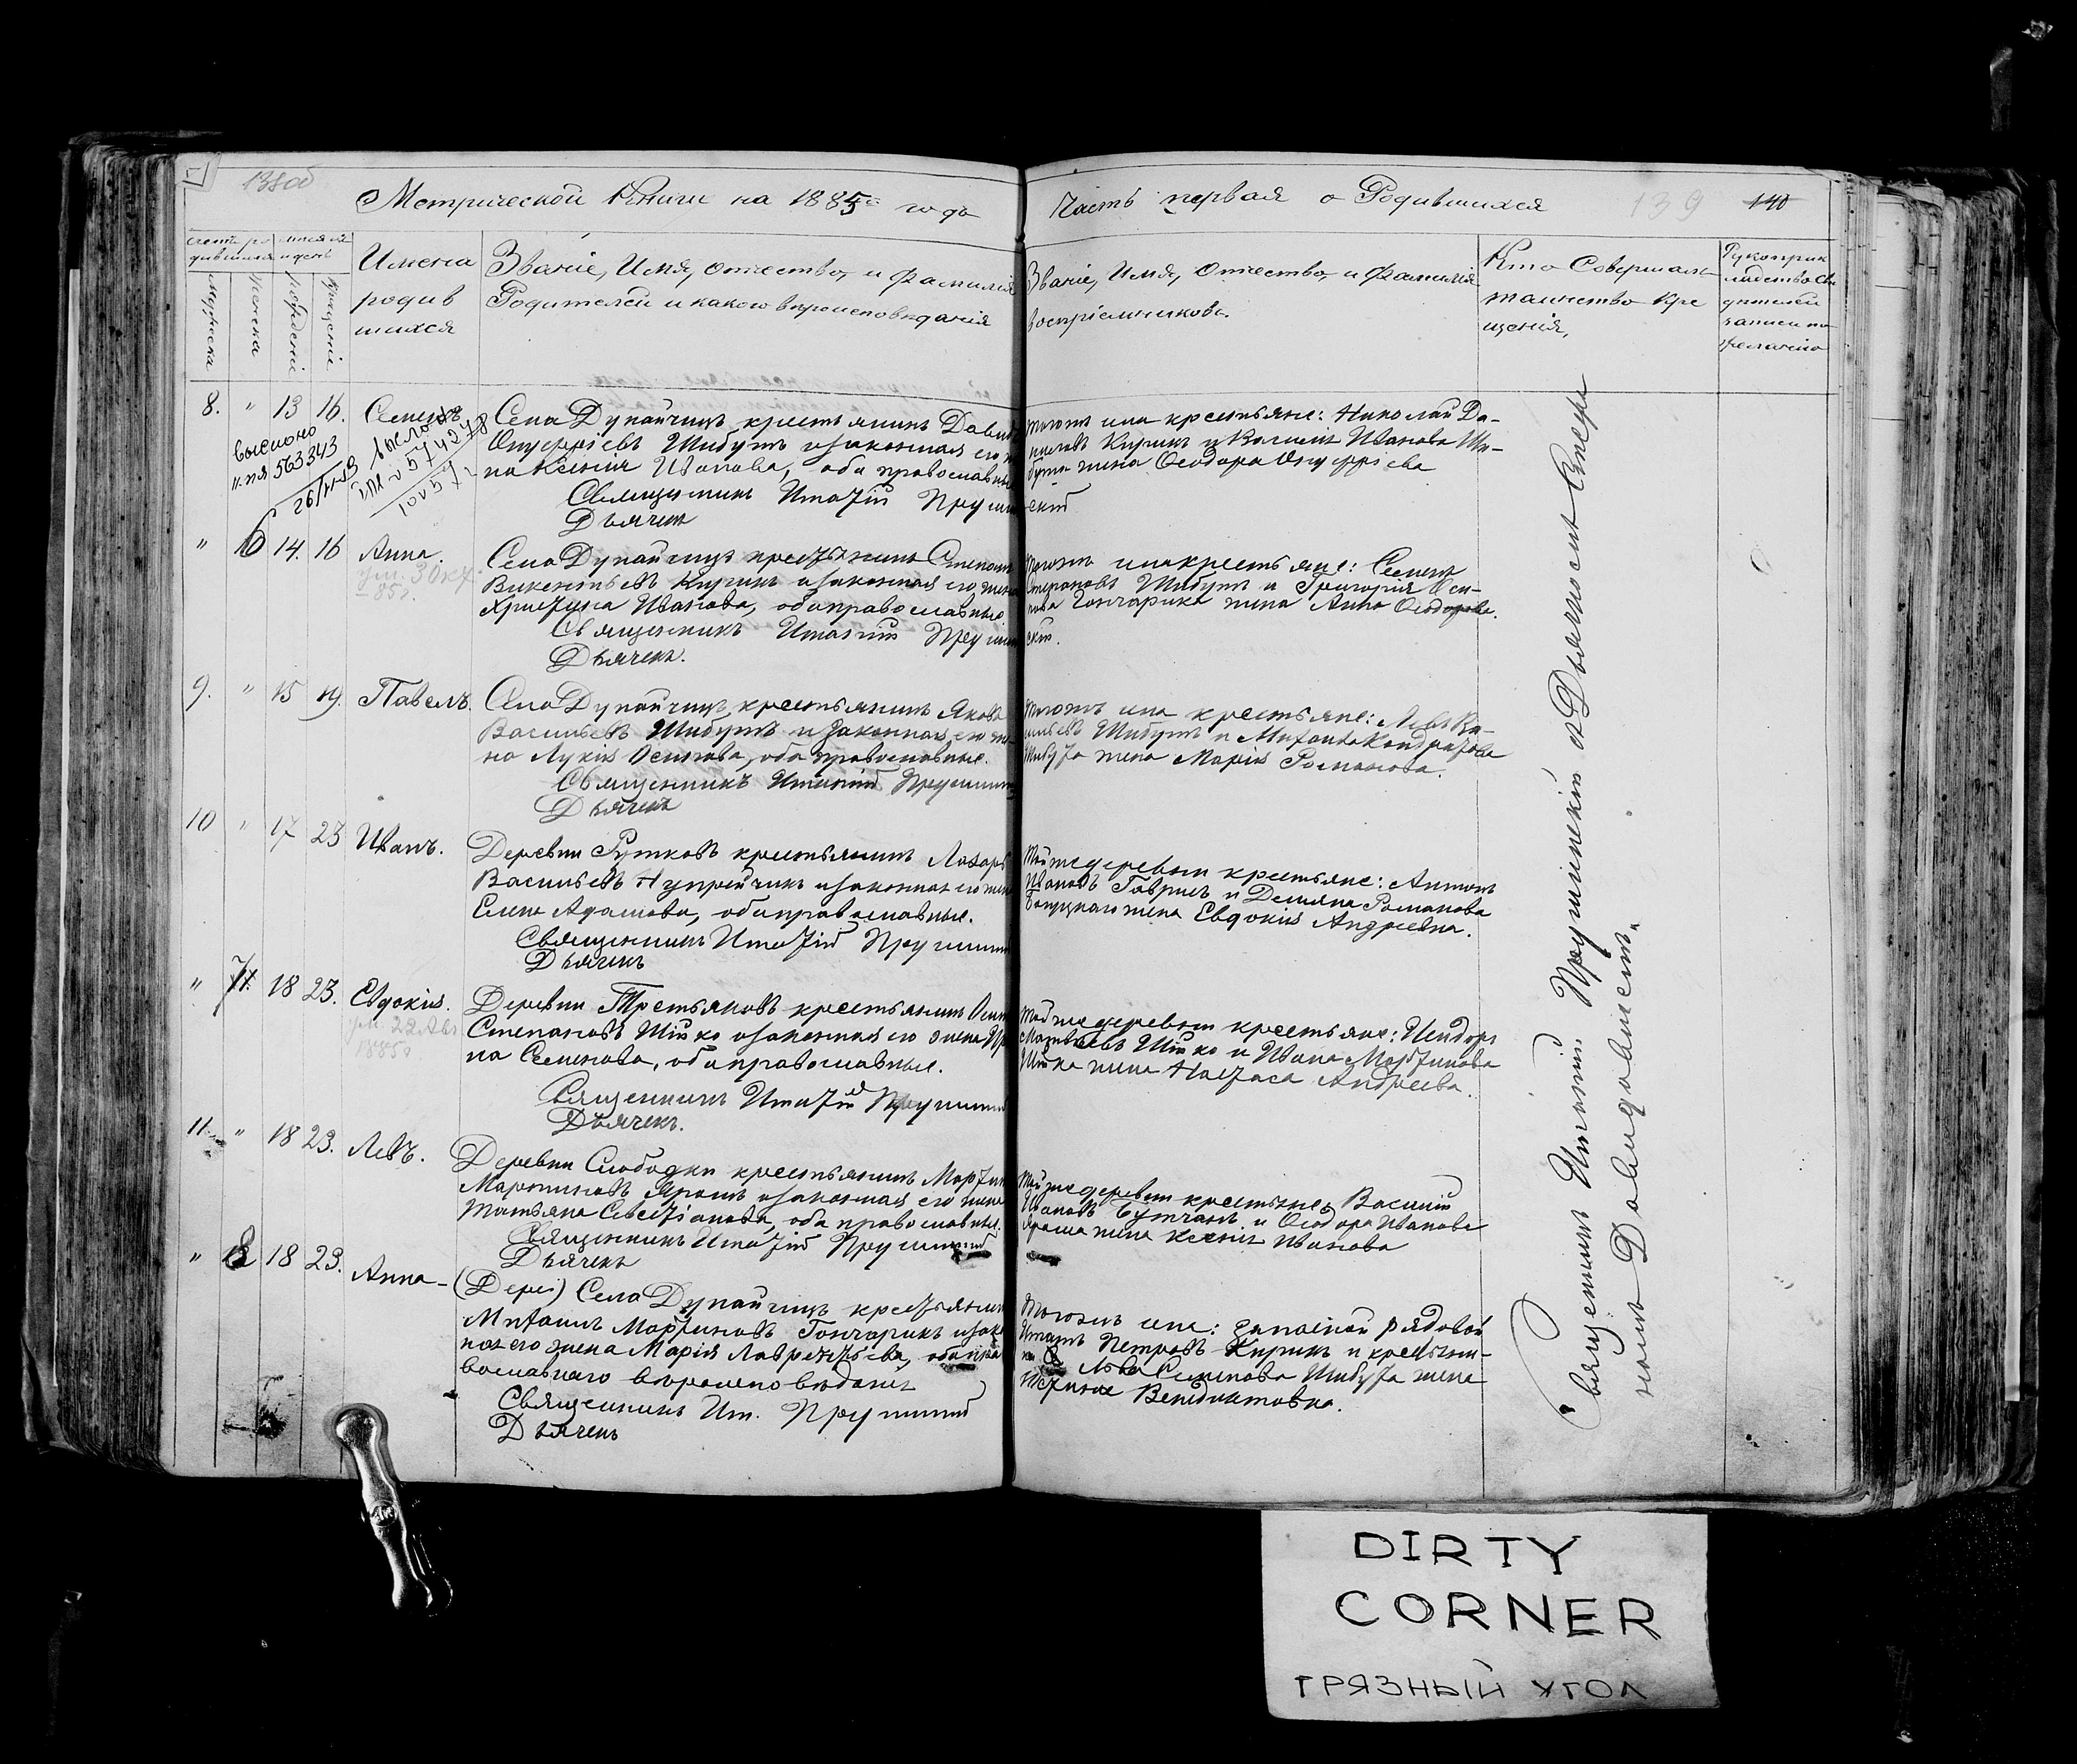 138об
Метрической Книги на 1885й годъ
Часть первая о Родившихся
139
140
Имена
родив
шихся
Званіе, Имя, Отчество, и Фамилія
Родителей и какого вѣроисповѣданія
Званіе, Имя, Отчество, и Фамилія
Воспріемниковъ.
Кто Совершалъ
таинство Кре
щенія,
Мужеска
Женска
Рожденія
Крещенія
8. " 13 16. Семенъ
выслано
563343
574278
Села Дунайчицъ крестьянинъ Давидъ
Онуфріевъ Шибутъ и законная его же
на Ксенія Иванова, оба православные
Священникъ Игнатій Прушинскій
Дьячекъ
тогожъ села крестьяне: Николай Да-
ниловъ Кирикъ и Василія Иванова Ши-
бута жена Ѳеодора Онуфріева
" 6 14. 16 Анна.
ум. 3 Окт.
85г.
Села Дунайчицъ крестьянинъ Степанъ
Викентьевъ Кирикъ и законная его жена
Христина Иванова, оба православные
Священникъ Игнатій Прушинскій.
Дьячекъ.
тогожъ села крестьяне: Семенъ
Степановъ Шибутъ и Григорія Оси-
пова Гончарика жена Анна Ѳеодорова.
9. " 15 19. Павелъ.
Села Дунайчицъ крестьянинъ Яковъ
Васильевъ Шибутъ и законная его же-
на Лукія Осипова, оба православные.
Священникъ Игнатій Прушинскій
Дьячекъ
тогожъ села крестьяне: Левъ Ва-
сильевъ Шибутъ и Михаила Кондратова
Шибута жена Марія Романова.
10 " 17 23 Иванъ.
Деревни Рутковъ крестьянинъ Лазарь
Васильевъ Нупрейчикъ и законная его жена
Елена Адамова, оба православные.
Священникъ Игнатій Прушинскій
Дьячекъ
тойже деревни крестьяне: Антонъ
Ивановъ Гаврилъ и Демьяна Романова
жена Евдокія Андреевна.
" 7. 18 23. Евдокія.
ум. 22 Авг
1885г
Деревни Третьяковъ крестьянинъ Осипъ
Степановъ Шійко и законная его жена
на Семенова, оба православные.
Священникъ Игнатій Прушинскій
Дьячекъ.
тойже деревни крестьяне: Исидоръ
Матвѣевъ Шійко и Ивана Мартинова
Шійка жена Настаса Андреева.
11. " 18 23. Левъ.
Деревни Слободки крестьянинъ Мартинъ
Мартиновъ Ярошъ и законная его жена
Татьяна Севестіанова, оба православные.
Священникъ Игнатій Прушинскій
Дьячекъ
тойже деревни крестьяне: Василій
Ивановъ Бутчакъ и Ѳеодора Иванова
Яроша жена Ксенія Иванова
" 8 18 23. Анна -
(Дерев) Села Дунайчицъ крестьянинъ
Михаилъ Мартиновъ Гончарикъ и закон
ная его жена Марія Лаврентьева, оба пра
вославнаго вѣроисповѣданія
Священникъ Игн. Прушинскій
Дьячекъ
тогожъ села: запасной рядовой
Игнатъ Петровъ Кирикъ и крестьян-
на Льва Семенова Шибута жена
Устинія Венедиктовна.
Священникъ Игнатій Прушинскій
DIRTY
CORNER
ГРЯЗНЫЙ УГОЛ